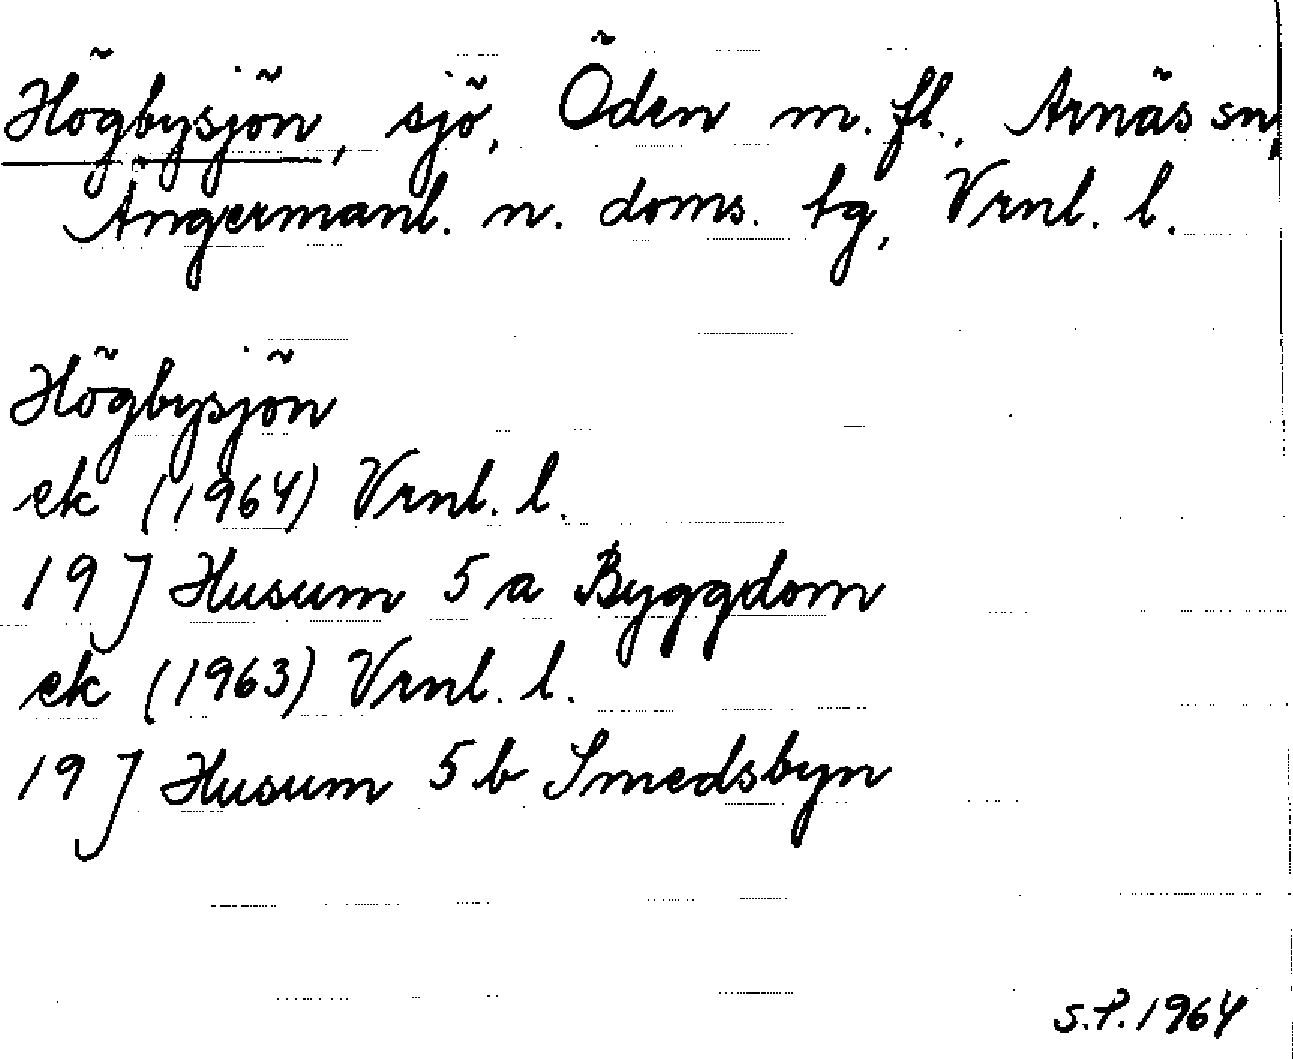 Högbysjön, sjö, Öden m. fl., Arnäs sn,
Ångermanl. n. doms. tg, Vrnl. l.
Högbysjön
ek (1964) Vrnl. l.
19 J Husum 5 a Byggdom
ek (1963) Vrnl. l.
19 J Husum 5 b Smedsbyn
S.P. 1964